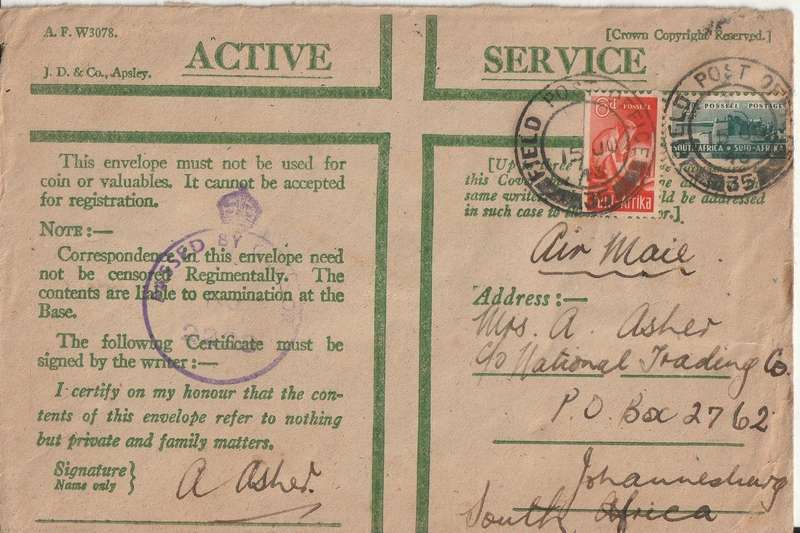 A. F. W3078.
[Crown Copyright Reserved.]
J. D. & Co., Apsley.
ACTIVE SERVICE
FIELD POST
15
FIELD POST
35
6d POSSEËL
Suid-Afrika
POSSEEL POSTAGE
SOUTH AFRICA SUID-AFRIKA
This envelope must not be used for
coin or valuables. It cannot be accepted
for registration.
NOTE:—
Correspondence in this envelope need
not be censored Regimentally. The
contents are liable to examination at the
Base.
The following Certificate must be
signed by the writer:—
I certify on my honour that the con-
tents of this envelope refer to nothing
but private and family matters.
Signature
Name only
A Asher.
PASSED BY
this Cove
same write
be addressed
in such case to
Air Mail.
Address:—
Mrs. A. Asher
c/o National Trading Co.
P.O. Box 2762
Johannesburg
South Africa